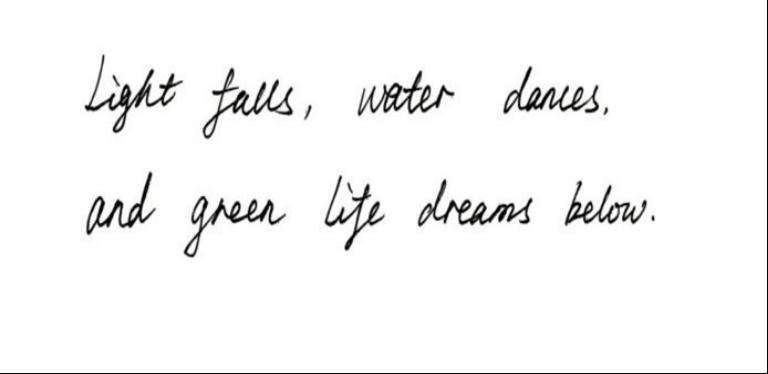 Light falls, water dances,
and green life dreams below.